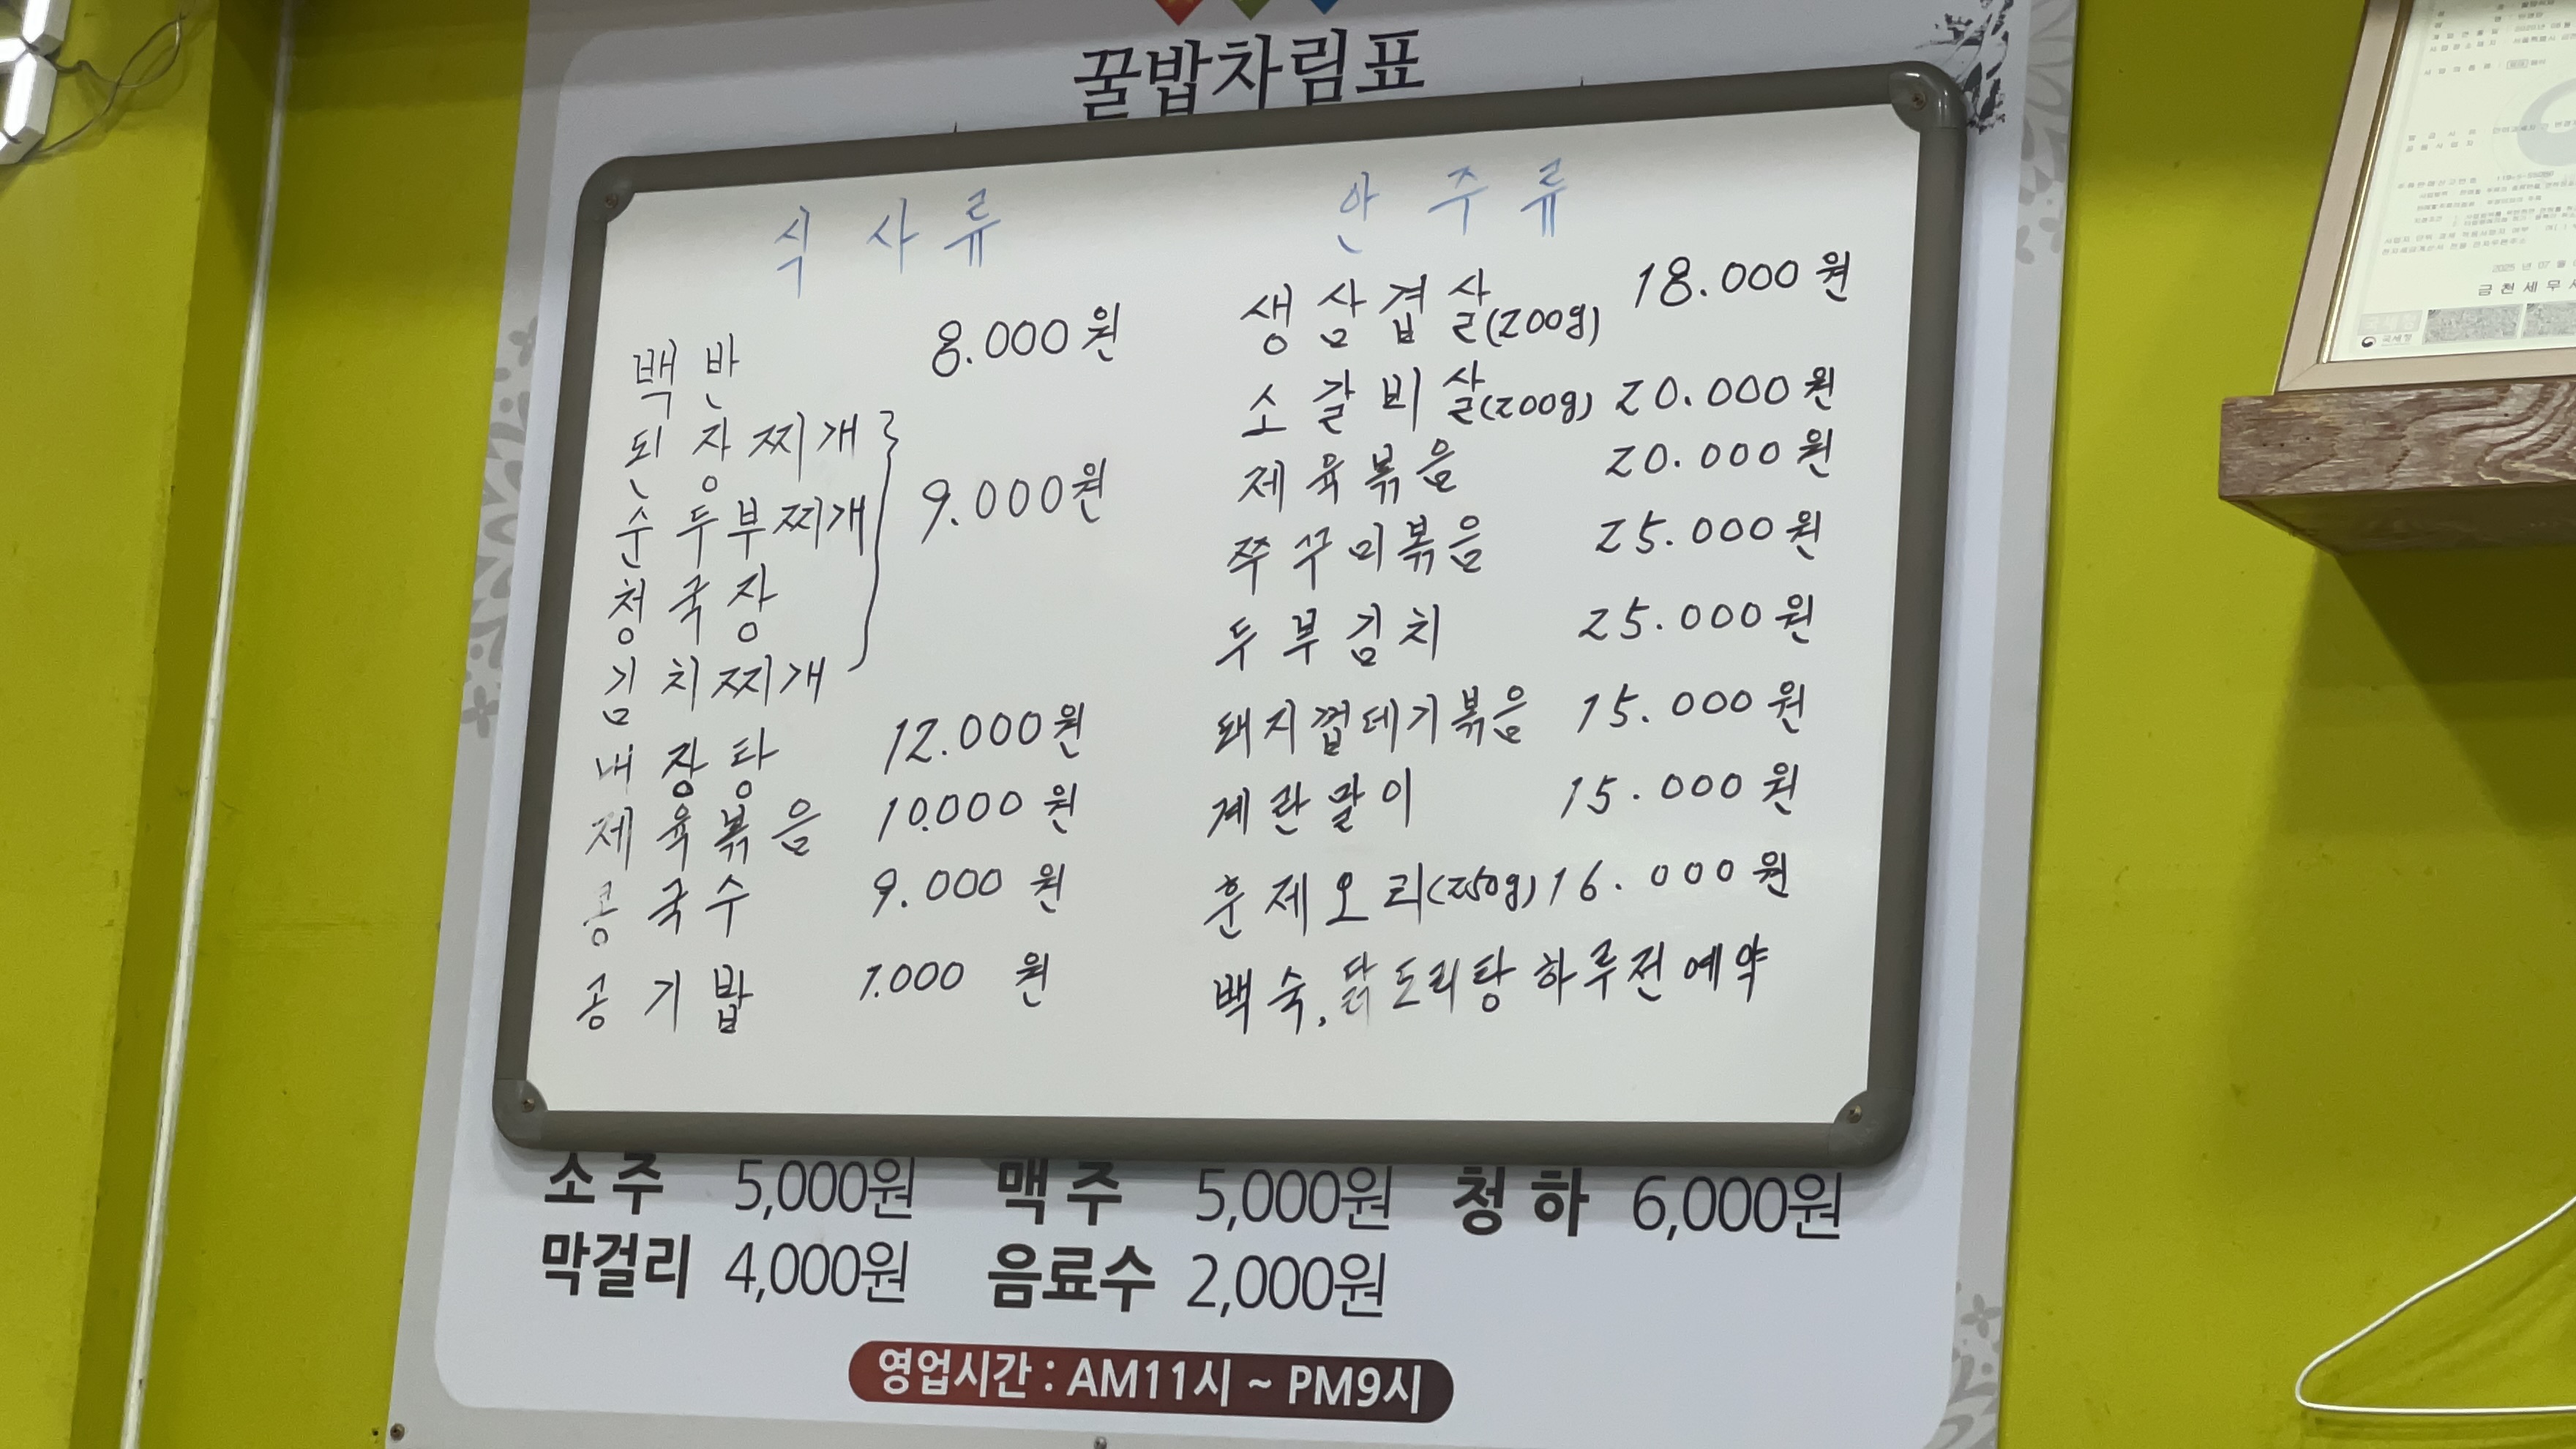 꿀밥차림표
식사류
백반 8.000원
된장찌개
순두부찌개 9.000원
청국장
김치찌개
내장탕 12.000원
제육볶음 10.000원
콩국수 9.000원
공기밥 1.000원
안주류
생삼겹살(200g) 18.000원
소갈비살(200g) 20.000원
제육볶음 20.000원
쭈꾸미볶음 25.000원
두부김치 25.000원
돼지껍데기볶음 15.000원
계란말이 15.000원
훈제오리(250g) 16.000원
백숙,닭도리탕 하루전예약
소주 5,000원 맥주 5,000원 청하 6,000원
막걸리 4,000원 음료수 2,000원
영업시간 : AM11시 ~ PM9시
금천세무서
국세청